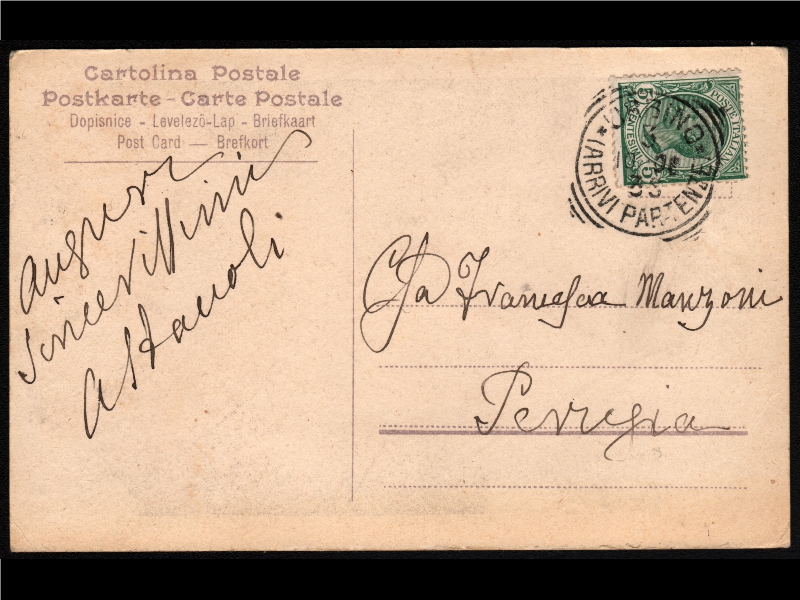 Cartolina Postale
Postkarte - Carte Postale
Dopisnice - Levelezö-Lap - Briefkaart
Post Card — Brefkort
auguri
sincerissimi
POSTE ITAL
(ARRIVI PARTENZE
Francesca Manzoni
Perugia